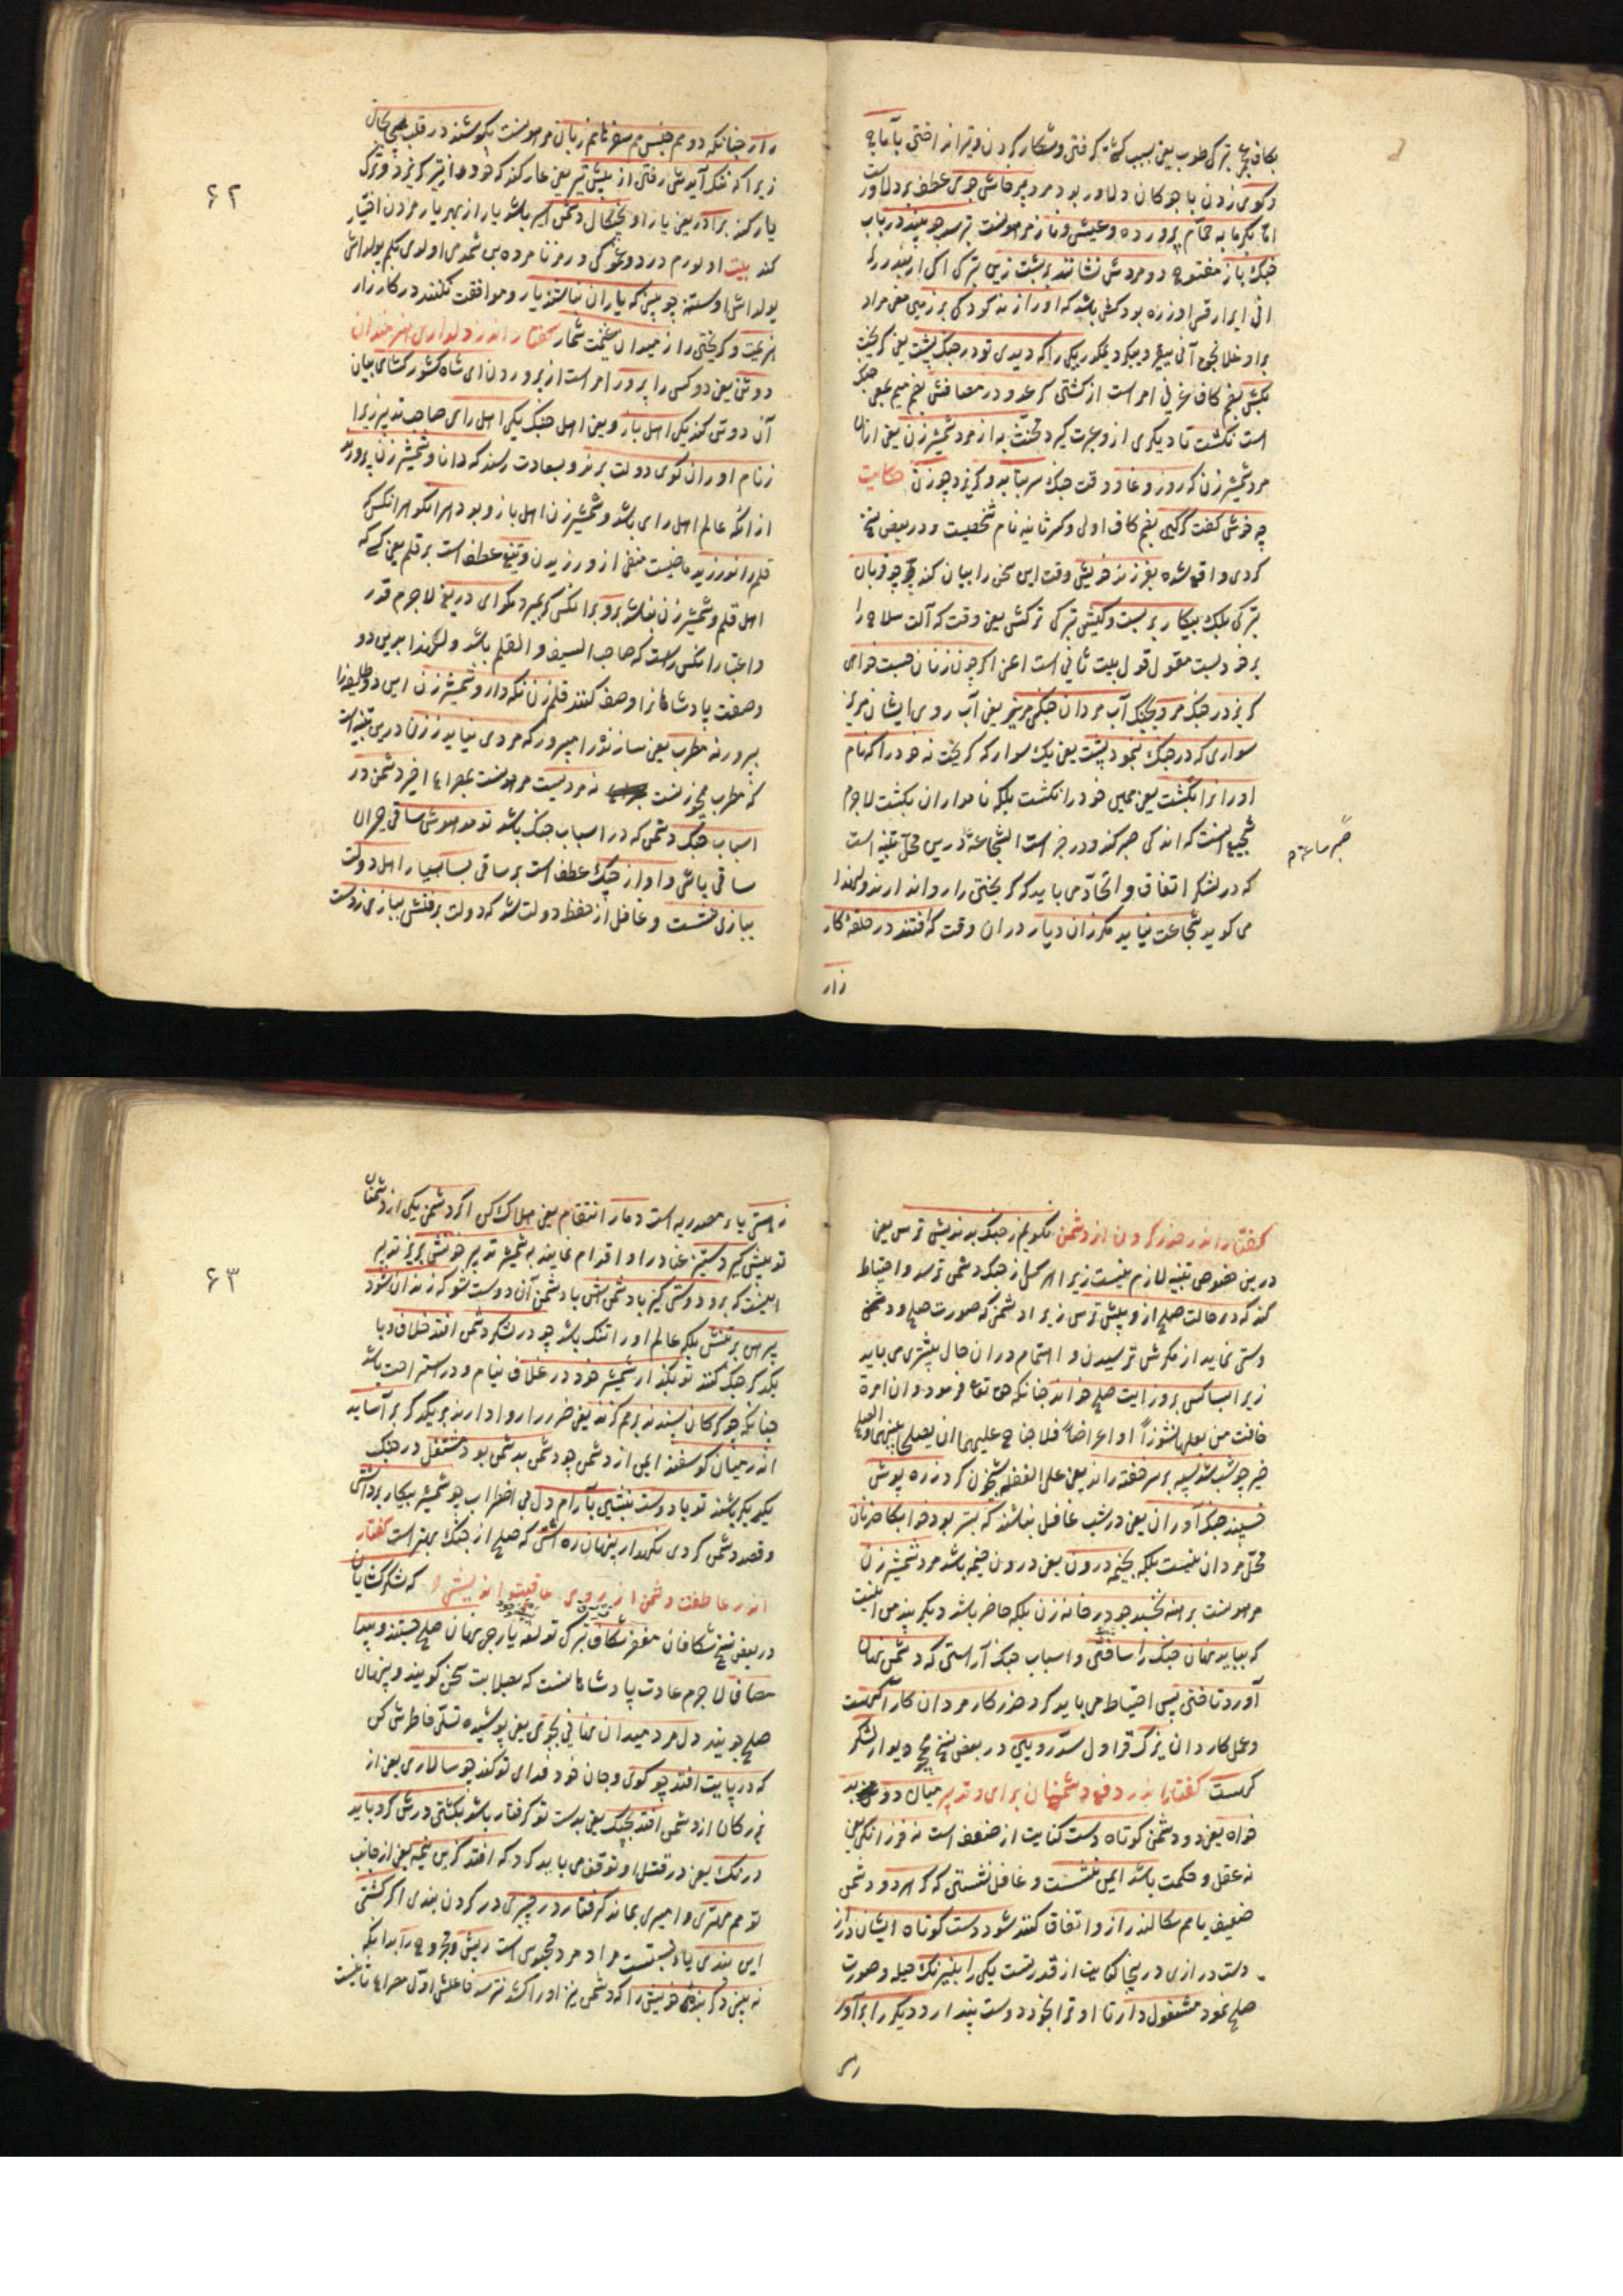 بکاف عجمی ترکی طوب یعنی بسبب کشتی گرفتن و شکار کردن و تیر انداختن بآماج
و کوی زدن با چوکان دلاور بود مرد پرخاش جوی عطف بر دلاور است
اما بگرمابه حمام پرورده و عیش و ناز مرهونست بترسد چو بیند در باب
جنک باز مفتوح دو مردش نشانند بر پشت زین ترکی اکر ار یندررلر
انی ایرار قسا اوزره بود کش باشد که اورا زند کودکی بر زمین یعنی مراد
یکی را که دیدی تو در جنک پشت یعنی کریخت
بکش بضم کاف عربی امر است از کشتن کر عدو در مصافش بضم میم یعنی جنک
است نکشت تا دیکری ازو عبرت کیرد مخنث به از مرد شمشیر زن یعنی ازان
مرد شمشیر زن که روز وغا و وقت جنک سر بتابد و کریزد چو زن حکایت
چه خوش کفت کرکین بضم کاف اولی و کسر ثانیه نام شخصیت و در بعض نسخ
کردی واقع شده بفرزند خویش وقت این سخن را بیان کند چو قربان
ترکی یلک پیکار بر بست و کیش ترکی ترکش یعنی وقت که آلت سلاح را
بر خود بست مقول قول بیت ثانی است اعنی اکر چون زنان جست خواهی
کریز در جنک مرو بجنک آب مردان جنکی مریز یعنی آب روی ایشان مریز
سواری که در جنک بنمود پشت یعنی یک سوار که کریخت نه خود را که نام
اورانرا بکشت یعنی همین خود را نکشت بلکه نامداران بکشت لاجرم
شجیع آنست که اندکی صبر کند و در خبر است الشجاعة درین محل تنبیه است
صبر ساعة م
که در لشکر اتفاق و اتحاد می باید که کریختن را روا ندارند و لهذا
می کوید شجاعت نیاید مکر زان دو یار دران وقت که افتند در حلقه کار
زار
۶۲
زار چنانکه دو هم جنس هم سفره هم زبان مرهونست بکوشند در قلب هیجا بجان
زیرا که ننک آیدش رفتن از پیش تیر یعنی عار کند که خود از تیر کریزد و ترک
یار کند برادر یعنی یار او بچنکال دشمن اسیر باشد یار از بهر یار مردن اختیار
کند بیت
یولداش اولسته چو بینی که یاران نباشند یار و موافقت نکنند در کارزار
هزیمت و کریختن را از میدان غنیمت شمار کفتار اندر دلداری هنرمندان
دو تن یعنی دو کس را پرور امر است از پروردن ای شاه کشور کشای بیان
آن دو تن کند یکی اهل بازو یعنی اهل جنک یکی اهل رای صاحب تدبیر زیرا
ز نام اوران کوی دولت برند و بسعادت رسند که دانا و شمشیر زن پرورند
ازانکه عالم اهل رای باشد و شمشیر زن اهل بازو بود هرانکو هرانکس که
قلم را نورزید ماضیست منفی از ورزیدن و تیغ عطف است بر قلم یعنی کسی که
اهل قلم و شمشیر زن نباشد برو برانکس کر بمیرد مکو ای دریغ لاجرم قدر
و اعتبار انکس راست که صاحب السیف و القلم باشد و لهذا بدین دو
وصفت پادشاهانرا وصف کنند قلم زن نکه دار و شمشیر زن این دو طایفه را
بپرور نه مطرب یعنی سازنده را مپرور که مردی نیاید ز زن درین تنبیه است
که مطرب چو زنست نه مردیست مرهونست بمصراع اخیر دشمن در
اسباب جنک دشمن که در اسباب جنک باشد تو مدهوش ساقی حیران
ساقی باش و اواز چنک عطف است بر ساقی بسا بسیار اهل دولت
ببازی نشست و غافل از حفظ دولت شد که دولت برفتش ببازی ز دست
کفتار اندر حذر کردن از دشمن نکویم ز جنک بداندیش ترس یعنی
درین خصوص تنبیه لازم نیست زیرا هر کس از جنک دشمن ترسد و احتیاط
کند که در حالت صلح ازو بیش ترس زیرا دشمن که صورت صلح و دشمن
دستی نماید از مکرش ترسیدن و اهتمام دران حال بیشتر می باید
زیرا بسا کس بروز ایت صلح خواند چنانکه حق تع فرموده وان امرة
خافت من بعلها نشوزاً او اعراضاً فلا جناح علیهما ان یصلحا بینهما والصلح
خیر چو شب شد سپه بر سر خفته راند یعنی علی الغفله شبخون کرد زره پوش
خسپند جنک آوران یعنی در شب غافل نباشند که بستر بود خوابکاه زنان
محل مردان نیست بلکه بخیمه درون یعنی درون خیمه باشد مرد شمشیر زن
مرهونست برهنه نخسپد چو در خانه زن بلکه حاضر باشد دیکر پند من اینست
که بباید نهان جنک را ساختن و اسباب جنک آراستن که دشمن نهان
آورد تاختن پس احتیاط می باید کرد حذر کار مردان کار آکهست
و عمل کار دان یزک قراول سد رویین در بعض نسخ دیوار لشکر
کهست کفتار اندر دفع دشمنان برای و تدبیر میان دو بد
خواه یعنی دو دشمن کوتاه دست کنایت از ضعف است نه فرزانکی یعنی
نه عقل و حکمت باشد ایمن نشست و غافل نشستن که کر هر دو دشمن
ضعیف با هم سکالند راز و اتفاق کنند شود دست کوتاه ایشان دراز
دست درازی درینجا کنایت از قدرتست یکی را بنیرنک حیله و صورت
صلح نمود مشغول دار تا او ترا بخود دوست پندارد دیکر را برآور
۶۳
ز هستی یاء مصدریه است دمار انتقام یعنی هلاک کن اکر دشمن یکی از دشمنان
تو پیش کیرد ستیز عناد را و اقدام نماید بشمشیر تدبیر خونش بریز تدبیر
اینست که برو دوستی کیر با دشمنش با دشمن آن دوست شو که زندان شود
پیرهن بر تنش بلکه عالم اورا تنک باشد چو در لشکر دشمن افتد خلاف و با
یکدکر جنک کنند تو بکذار شمشیر خود در غلاف نیام و در استراحت باش
چنانکه چو کرکان پسندند بر هم کزند یعنی ضرر را روا دارند بر یکدکر بر آساید
اندر میان کوسفند ایمن از دشمن چو دشمن بدشمن بود مشتغل در جنک
یکدیکر باشند تو با دوست بنشین بآرام دل بی اضطراب چو شمشیر پیکار برداشتی
و قصد دشمن کردی نکهدار پنهان ره آشتی که صلح از جنک بهتر است کفتار
اندر عاطفت دشمن از روی عاقبت اندیشی که لشکر کشایان
در بعض نسخ شکافان مغفر شکاف ترکی تولغه یارجی نهان صلح جستند و پیدا
مصاف لاجرم عادت پادشاهانست که بصلابت سخن کویند و پنهان
صلح جویند دل مرد میدان نهانی بجوی یعنی پوشیده تسلی خاطرش کن
که در پایت افتد چو کوی و جان خود فدای تو کند چو سالاری یعنی از
بزرکان از دشمن افتد بچنک یعنی بدست تو کرفتار باشد بکشتن درش کرد باید
درنک یعنی در قتل او توقف می باید کرد که افتد کزین نیمه یعنی از جانب
تو هم مهتری و امیری بماند کرفتار در چنبری در کردن بندی اکر کشتی
این بندی یاء نسبتست مراد مرد محبوس است ریش و مجروح را بدانکه
نه بینی دکر بندی خویش را که دشمن نیز اورا کشد نترسد فاعلش اول مصراع ثانیست